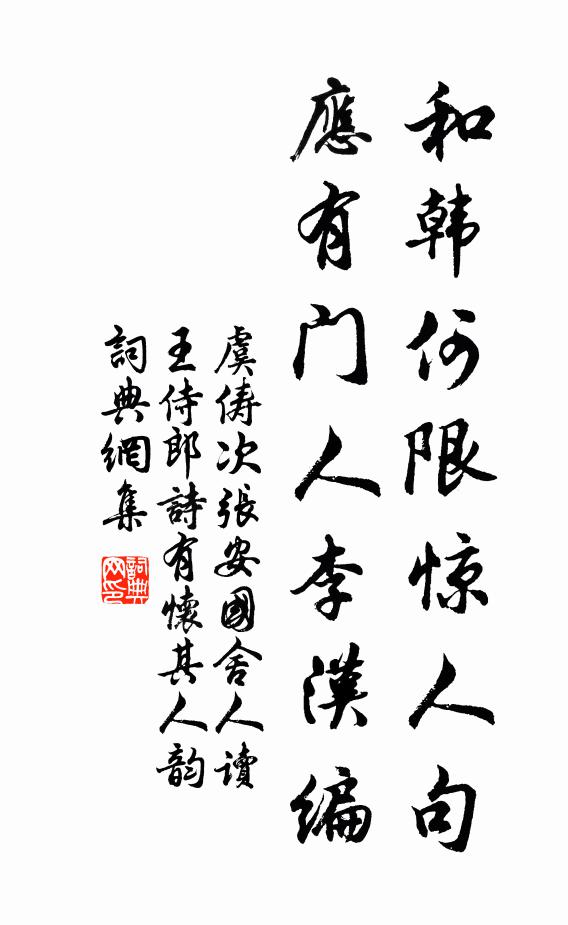 和韩何限惊人句
應有门人李漢编
虞俦次張安國舍人读
王侍郎詩有懷其人韵
詞典網集
詞典网印